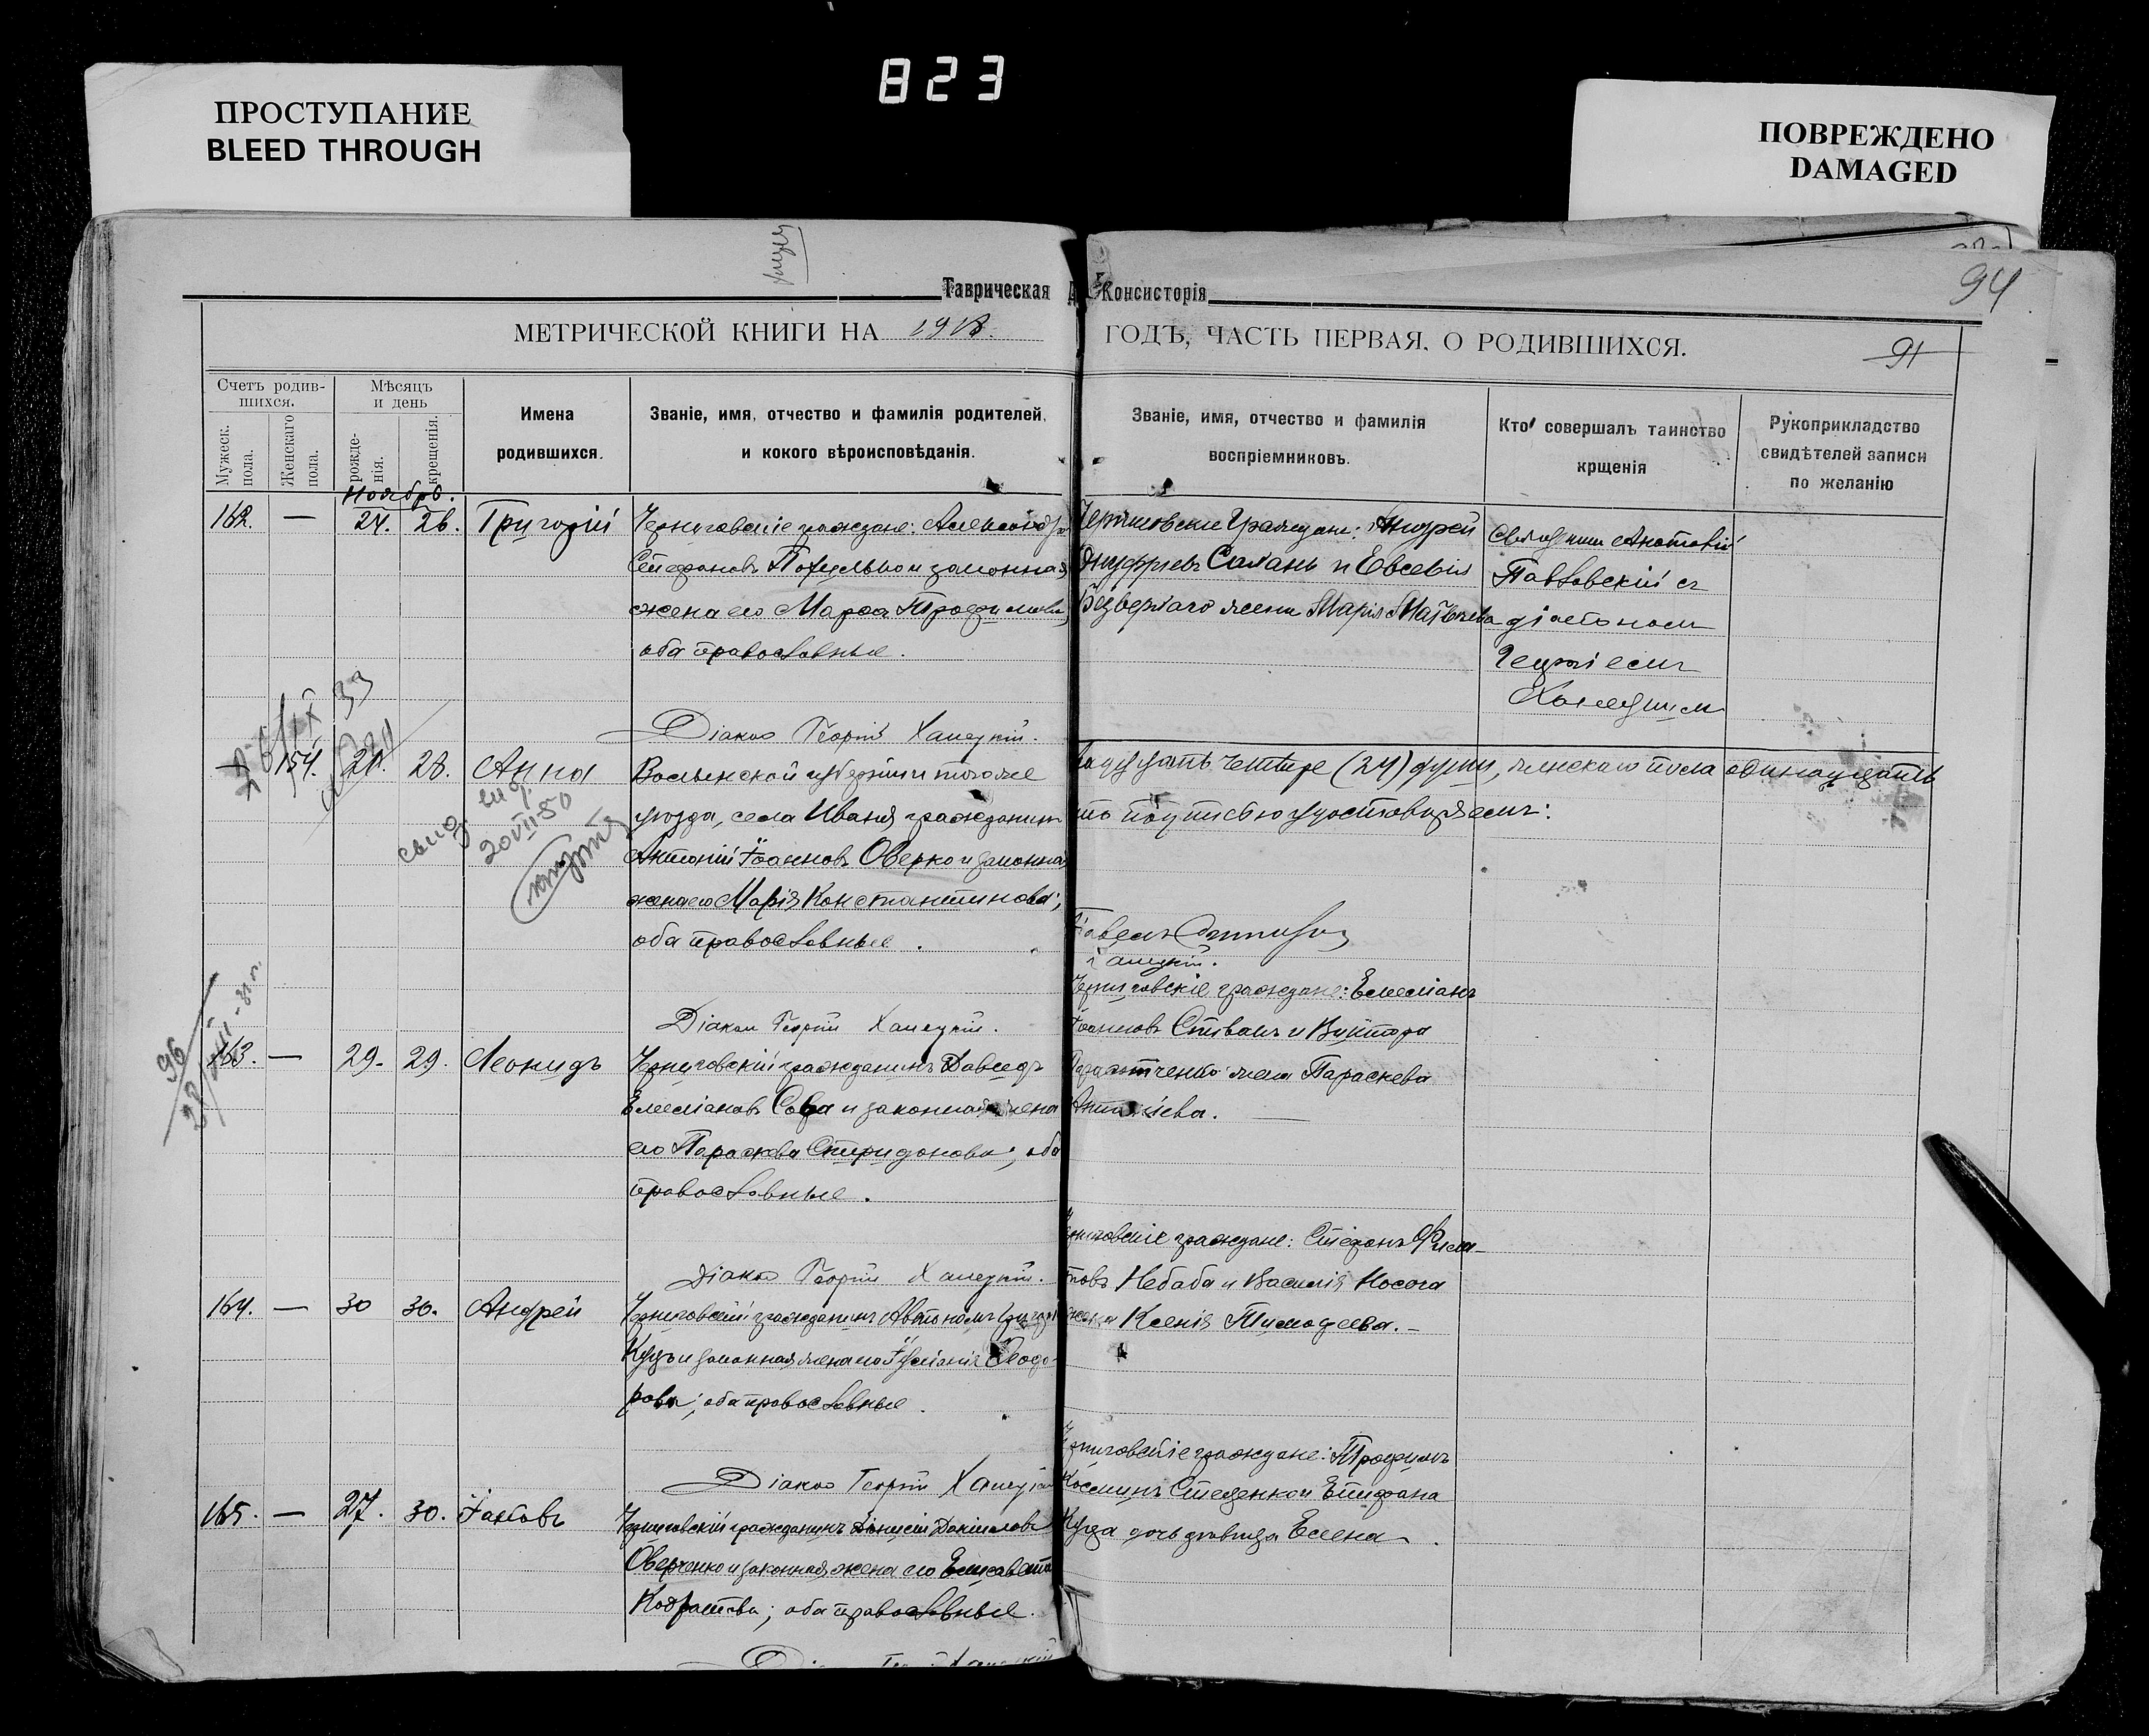 ПРОСТУПАНИЕ
BLEED THROUGH
823
ПОВРЕЖДЕНО
DAMAGED
94
Таврическая Д. Консисторія
МЕТРИЧЕСКОЙ КНИГИ НА 1918.
ГОДЪ, ЧАСТЬ ПЕРВАЯ, О РОДИВШИХСЯ.
91
Счетъ родив-
шихся.
Мужеск.
пола.
Женскаго
пола.
Мѣсяцъ
и день
рожде-
нія.
крещенія.
Имена
родившихся.
Званіе, имя, отчество и фамилія родителей,
и кокого вѣроисповѣданія.
Званіе, имя, отчество и фамилія
воспріемниковъ.
Кто совершалъ таинство
крщенія
Рукоприкладство
свидѣтелей записи
по желанію
Ноябрь.
162. — 24. 26. Григорій
Черниговскіе граждане:
Стефановъ и законная
жена его Марфа Трофимова,
оба православные.
Діаконъ Георгій Ханецкій.
Черниговскіе граждане: Андрей
Онуфріевъ Салань и Евсевія
жена Марія Матѳеева
Священник Антоній
Павловскій съ
діакономъ
Георгіемъ
— 154. 21. 28. Анна
Волынской губерніи того же
уѣзда, села Иваня гражданинъ
Антоній Іоанновъ Оверко и законная
жена его Марія Константинова;
оба православные.
Діаконъ Георгій Ханецкій.
четыре (24) души, женскаго пола одинадцать
удостовѣряемъ:
Павелъ
Ханецкій.
20 VII 50
163. — 29. 29. Леонидъ
Черниговскій гражданинъ Давидъ
Емеліановъ Сова и законная жена
его Параскева Спиридонова; оба
православные.
Діаконъ Георгій Ханецкій.
Черниговскіе граждане: Емеліанъ
Іоанновъ и Виктора
жена Параскева
164. — 30 30. Андрей
Черниговскій гражданинъ Автономъ
Куцъ и законная жена его Ѳеодо-
рова; оба православные.
Діаконъ Георгій Ханецкій
Черниговскіе граждане: Стефанъ Фила-
товъ Небаба и Василія Носога
жена Ксенія Тимофеева.—
165. — 27. 30. Іаковъ
Черниговскій гражданинъ Діонисій
Оверченко и законная жена его Елисавета
Кодратова; оба православные.
Черниговскіе граждане: Трофимъ
Косминъ Стеценко и Епифана
Куца дочь девица Елена.